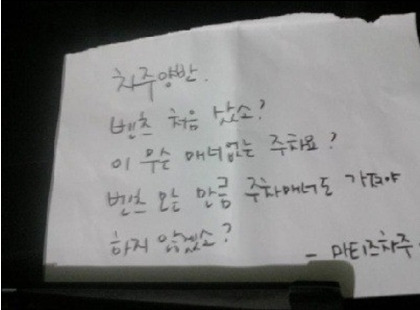 차주양반.
벤츠 처음 샀소?
이 무슨 매너없는 주차요?
벤츠 모는 만큼 주차매너도 가져야
하지 않겠소?
- 마티즈차주.